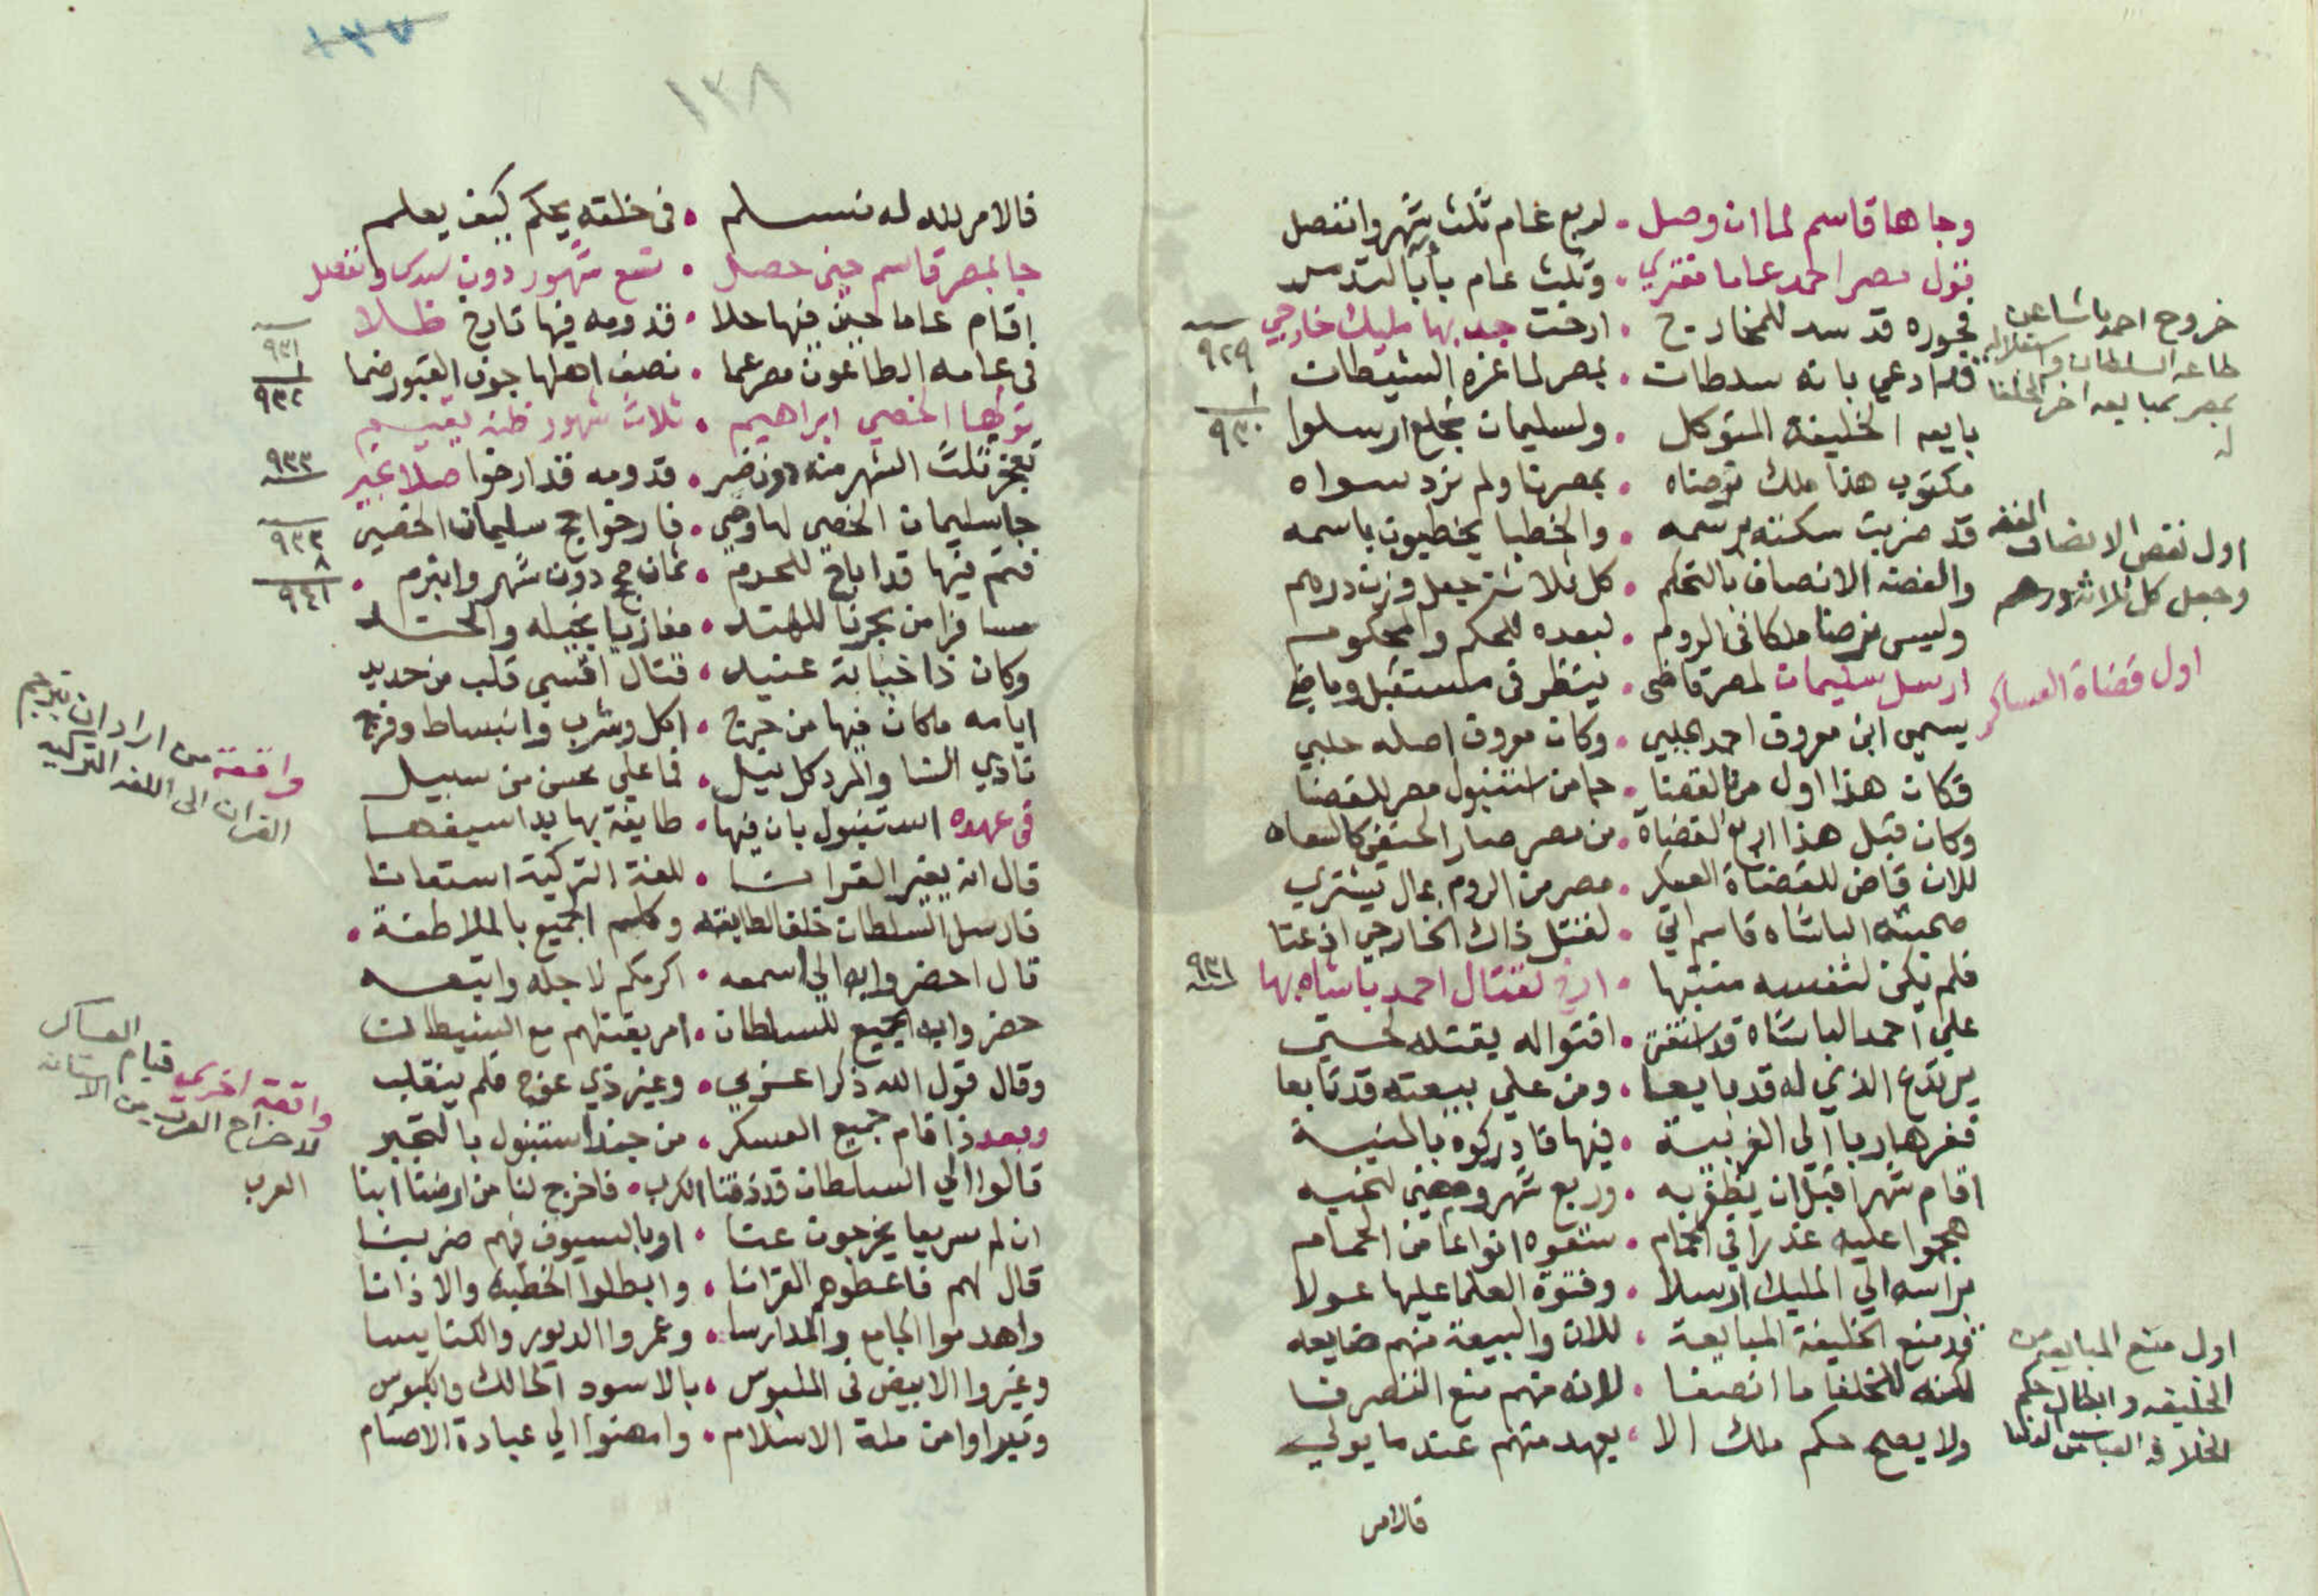 وجا هنا قاسم لما ان وصل • لربع عام ثلث شهر وانفصل
مصر احمد عاما مفتري • وثلث عام
فجوره قد سد للمخارج • ارخت بها مليك خارجي
فلما دعي بانه سلطان • بمصر لما غره الشيطان
بايعه الخليفة المتوكل • ولسليمان بخلع ارسلوا
مكتوب هذا ملك نرضاه • بمصرنا ولم نرد سواه
قد ضربت سكته برسمه • والخطبا يخطبون باسمه
والفضة الانصاف بالتحكم • كل ثلاث جعل وزن درهم
وليس نرضا ملكا في الروم • لبعده للحكم والمحكوم
ارسل سليمان لمصر قاضي • ينظر في مستقبل وماضي
يسمي ابن معروف احمد جلبي • وكان معروف اصله حلبي
فكان هذا اول من القضا • جا من استنبول مصر للقضا
وكان قبل هذا اربع القضاة • من مصر صار الحنفي كالسعاه
للان قاض للقضاة العسكر • مصر من الروم بمال يشتري
صحبته الباشاه قاسم اتي • لقتل ذاك الخارجي اذ عتا
فلم يكن لنفسه منتبها • ارخ لقتال احمد باشاه بها
علي احمد الباشاه قد استفتى • افتوا له بقتله
يرتدع الذي له قد بايعا • ومن علي بيعته قد تابعا
ففر هاربا الي الغربية • فيها فادركوه بالمنية
اقام شهرا قبل ان يظفر به • وربع شهر
هجموا عليه غدرا في الحمام • سقوه انواعا من الحمام
براسه الي المليك ارسلا • وفتوة العلما عليها عولا
قد منع الخليفة المبايعة • للان والبيعة منهم ضايعه
لكنه للخلفا ما انصفا • لانه منهم منع التصرفا
ولا يصح حكم ملك الا • بعهد منهم عند ما يولي
فالامر
خروج احمد باشا عن
طاعه السلطان واستقلاله
بمصر بمبايعه اخر الخلفا
له
٩٢٩
١
٩٣٠
اول نقص الانصاف الفضه
وجعل كل ثلاثه درهم
اول قضاة العساكر
٩٣١
اول منع المبايعه من
الخليفه وابطال حكم
الخلافه
١٣٧
١٣٨
فالامر لله له نسلم • في خلقه يحكم كيف يعلم
جا لمصر قاسم حين حصل • تسع شهور دون سدس وانفصل
اقام عاما حين فيها حلا • قدومه فيها تاريخ ظلا
في عامه الطاعون مصر عما • نصف اهلها جوف القبور ضما
ابراهيم • ثلاث شهور يقيم
ثلث الشهر منه دون ضير • قدومه قد ارخوا
جا سليمان الخصي لها وحي • فارخوا حج سليمان الخصي
فتم فيها قد اباح للحرم • ثمان حجج دون شهر وابترم •
مسافرا من بحرنا للهند • مغازيا بخيله والجند
وكان ذا خيابة عنيد • قتال اقسي قلب من حديد
ايامه ما كان فيها من حرج • اكل وشرب وانبساط وفرج
تاذي النسا والمرد كل نيل • فما علي محسن من سبيل
في عهده استنبول بان فيها • طايفة بها بدا سيفها
قال ان يغير القرانا • للغة التركية استعانا
فارسل السلطان خلف الطايفه وكلم الجميع بالملاطفة •
قال احضروا به الي اسمعه • اكرمكم لاجله واتبعه
حضروا به الجميع للسلطان • امر بقتلهم مع الشيطان
وقال قول الله ذكرا عربي • وغير ذي عوج فلم ينقلب
وبعد ذا قام جميع العسكر • من جند استنبول بالتجبر
قالوا الي السلطان قد ذقنا الكرب • فاخرج لنا من ارضنا
ان لم سريعا يخرجون عنا • او بالسيوف فيهم ضربنا
قال لهم فاعطوهم القرانا • وابطلوا الخطبة والاذانا
واهدموا الجامع والمدارسا • وعمروا الديور والكنايسا
وغيروا الابيض في الملبوس • بالاسود الحالك
وتبراوا من ملة الاسلام • وامضوا الي عبادة الاصنام
٩٣١
١
٩٣٢
٩٣٣
٩٣٣
٨
٩٤١
واقعة من اراد ان يترجم
القران الى اللغه التركيه
واقعة اخرى قيام العساكر
لاخراج العرب من الاستانه
العرب